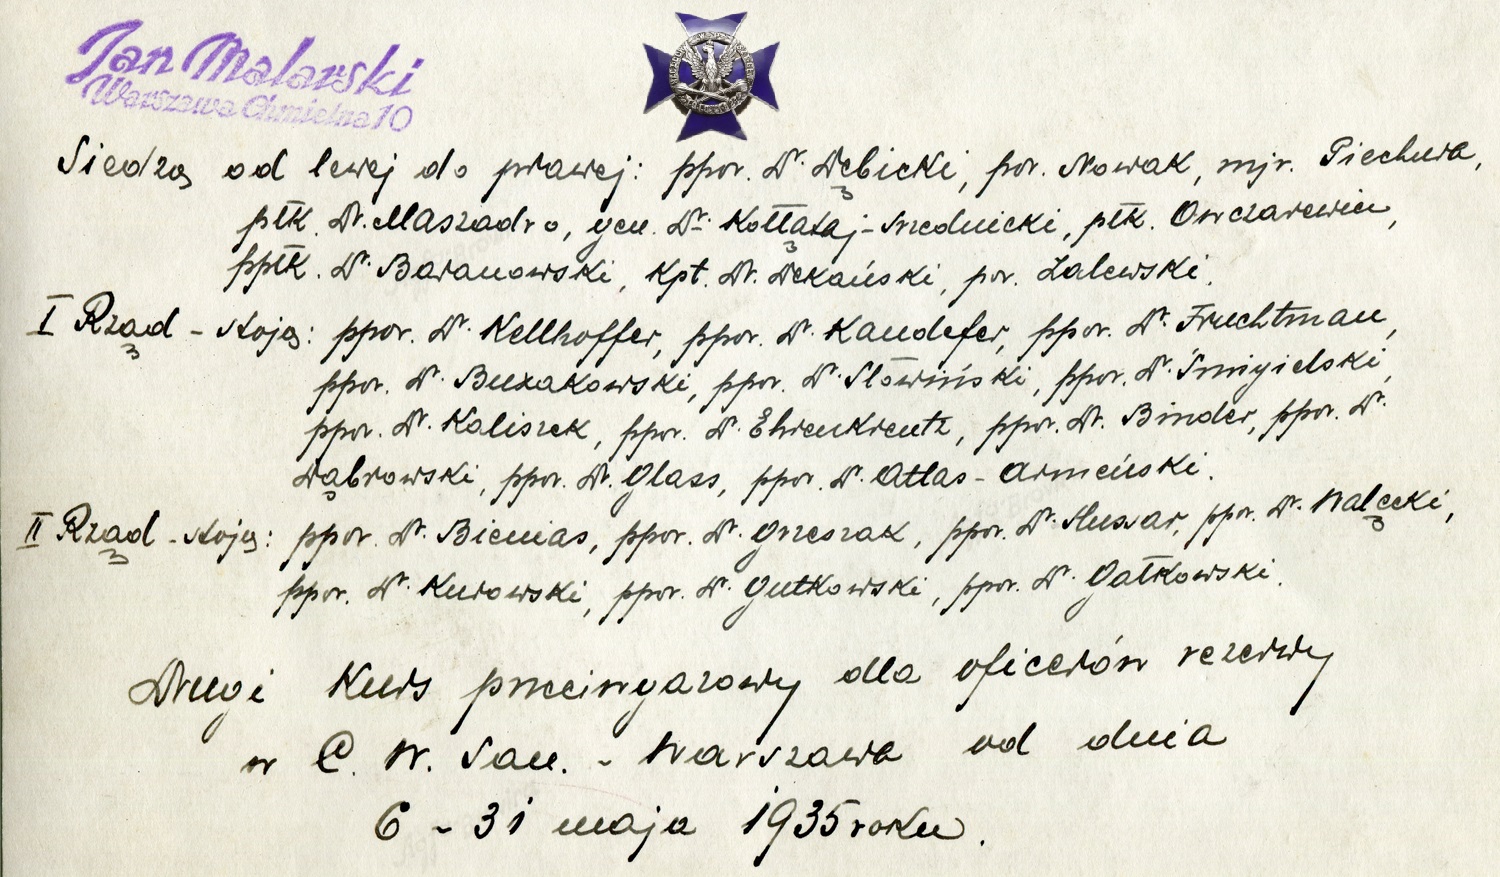 Jan Malarski
Warszawa Chmielna 10
Siedzą od lewej do prawej: ppor. Dr. Dębicki, por. Nowak, mjr. Piechura,
płk. Dr. Maszadro, gen. Dr. Kołłątaj-Srzednicki, płk. Owczarewicz,
ppłk. Dr. Baranowski, kpt. Dr. Dekański, por. Zalewski.
I Rząd - stoją: ppor. Dr. Kellhoffer, ppor. Dr. Kandefer, ppor. Dr. Fruchtman,
ppor. Dr. Buxakowski, ppor. Dr. Słowiński, ppor. Dr. Śmigielski,
ppor. Dr. Kaliszek, ppor. Dr. Ehrenkreutz, ppor. Dr. Binder, ppor. Dr.
Dąbrowski, ppor. Dr. Glass, ppor. Dr. Atlas-Armeński.
II Rząd - stoją: ppor. Dr. Biemias, ppor. Dr. Grzeszak, ppor. Dr. ppor. Dr. Walęcki,
ppor. Dr. Kurowski, ppor. Dr. Gutkowski, ppor. Dr. Gałkowski.
Drugi kurs przeciwgazowy dla oficerów rezerwy
w C. W. San. - Warszawa od dnia
6 - 31 maja 1935 roku.